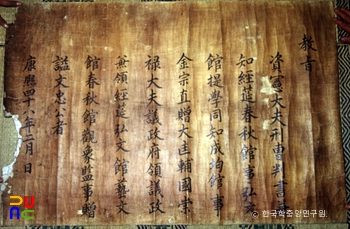 教旨
資憲大夫刑曹判書兼
知經筵春秋館事弘文
館提學同知成均館事
金宗直贈大匡輔國崇
祿大夫議政府領議政
兼領經筵弘文館藝文
館春秋館觀象監事贈
諡文忠公者
康熙四十八年 月 日
© 한국학중앙연구원